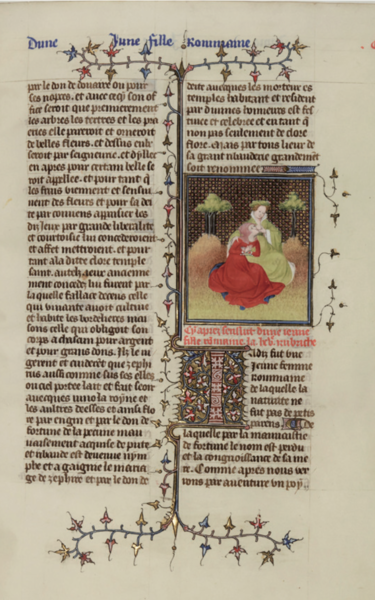 Dune Jeune fille Rommaine
par le don de donaire ou pour
ses nopces. et avec cecy son of
fice seroit que premierement
les arbres les tertres et les pra
eries elle pareroit et orneroit
de belles fleurs. et dessus enb
seroit par seigneurie. et dillec
en apres pour certain belle se
roit appellee. et pour tant que
les fruis viennent et sensui
vent des fleurs et pour sa dei
te par
du leur par grande liberalite
et courtoisie lui concederoient
et affermeroient. et pour
tant a la ditte clore temple
saint. autelz jeux ancienne
ment concedez lui furent par
laquelle fallace deceus celle
qui vivante avoit cultive
et habite les bordeliers mai
sons celle qui obligoit son
corps a chascun pour argent
et pour grans dons. Ilz le ju
gerent et cuiderent que zephi
rus aussi comme sus ses elles
ou ciel portee lait et fait seoir
avecques iuno la royne et
les aultres deesses et ainsi flo
re par engin et par le don de
fortune de la pecune mau
vaisement acquise de pute
et ribaude est devenue nym
phe et a gaigne le maria
ge de zephire et par le don de
deite avecques les morteux es
temples habitant et resident
par divines honneurs est fes
tivee et celebree et en tant que
non pas seulement de clore
flore. Mais par tous lieux de
sa grant ribauderie grandement
soit renommee
Cy apres sensuit dune jeune
fille rommaine la
Adis fut une
Jeune femme
Rommaine
de laquelle la
nativite ne
fut pas de petis
parens.
laquelle par la mauvaistie
de fortune le nom est perdu
et la congnoissance de sa me
re. Comme apres nous ver
rons par aventure un poy